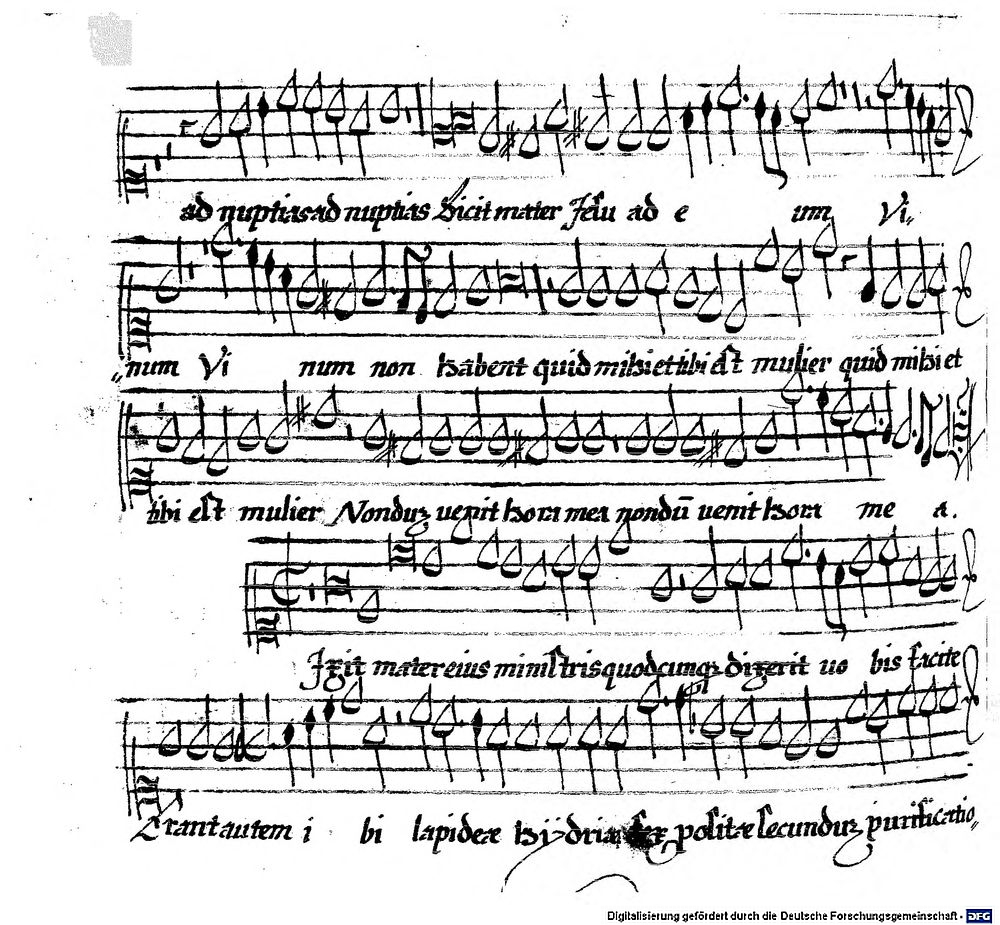 ad nuptias ad nuptias Dicit mater Jesu ad e um Vi„
„num Vi num non habent quid mihi et tibi est mulier quid mihi et
tibi est mulier Nonduꝫ uenit hora mea nondū uenit hora me a.
Ixit mater eius ministris quodcunqꝫ dixerit uo bis facite
Erant autem i bi lapideæ hÿdriæ sex positæ secunduꝫ purificatio„
Digitalisierung gefördert durch die Deutsche Forschungsgemeinschaft - DFG